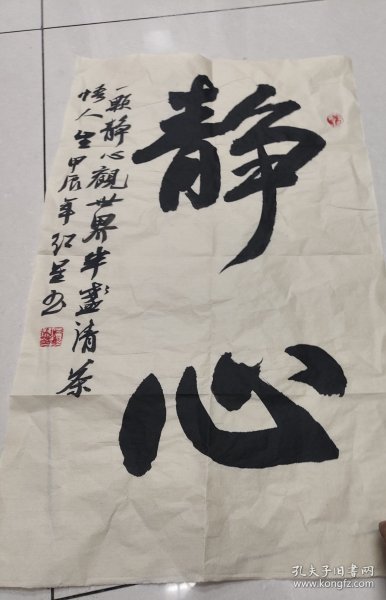 静心
一颗静心觀世界半盏清茶
悟人生甲辰年红 书
孔夫子旧书网
www.kongfz.com